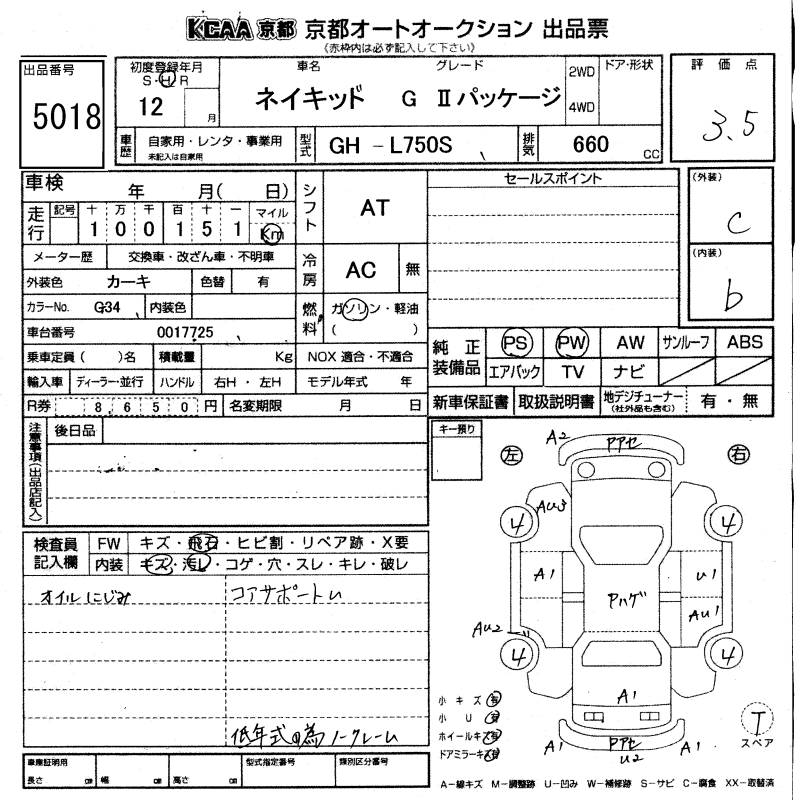 KCAA 京都 京都オートオークション 出品票
(赤枠内は必ず記入して下さい)
出品番号
5018
初度登録年月
S・H・R
12
月
車名
グレード
ネイキッド G IIパッケージ
2WD
4WD
ドア・形状
評価点
3.5
車歴
自家用・レンタ・事業用
未記入は自家用
型式
GH-L750S
排気
660
CC
車検
年 月( 日)
走行
記号 十 万 千 百 十 一 マイル
1 0 0 1 5 1 Km
メーター歴 交換車・改ざん車・不明車
外装色 カーキ 色替 有
カラーNo. G34 内装色
車台番号 0017725
乗車定員( )名 積載量 Kg NOX 適合・不適合
輸入車 ディーラー・並行 ハンドル 右H・左H モデル年式 年
R券 8650円 名変期限 月 日
シフト
AT
冷房
AC
無
燃料
ガソリン・軽油
( )
セールスポイント
(外装)
C
(内装)
b
純正装備品
PS PW AW サンルーフ ABS
エアバック TV ナビ
新車保証書 取扱説明書 地デジチューナー (社外品も含む) 有・無
注意事項(出品店記入)
後日品
検査員記入欄
FW キズ・飛石・ヒビ割・リペア跡・X要
内装 キズ・汚レ・コゲ・穴・スレ・キレ・破レ
オイルにじみ
コアサポートU
低年式の為ノークレーム
車庫証明用
長さ cm 幅 cm 高さ cm
型式指定番号
類別区分番号
キー預り
左
右
A2
Pアセ
AU3
4
4
A1
U1
Pハゲ
AU1
AU2
4
4
A1
小キズ 有
小U 有
ホイールキズ 有
ドアミラーキズ 有
A1
Pアセ
U2
A1
T
スペア
A-線キズ M-調整跡 U-凹み W-補修跡 S-サビ C-腐食 XX-取替済